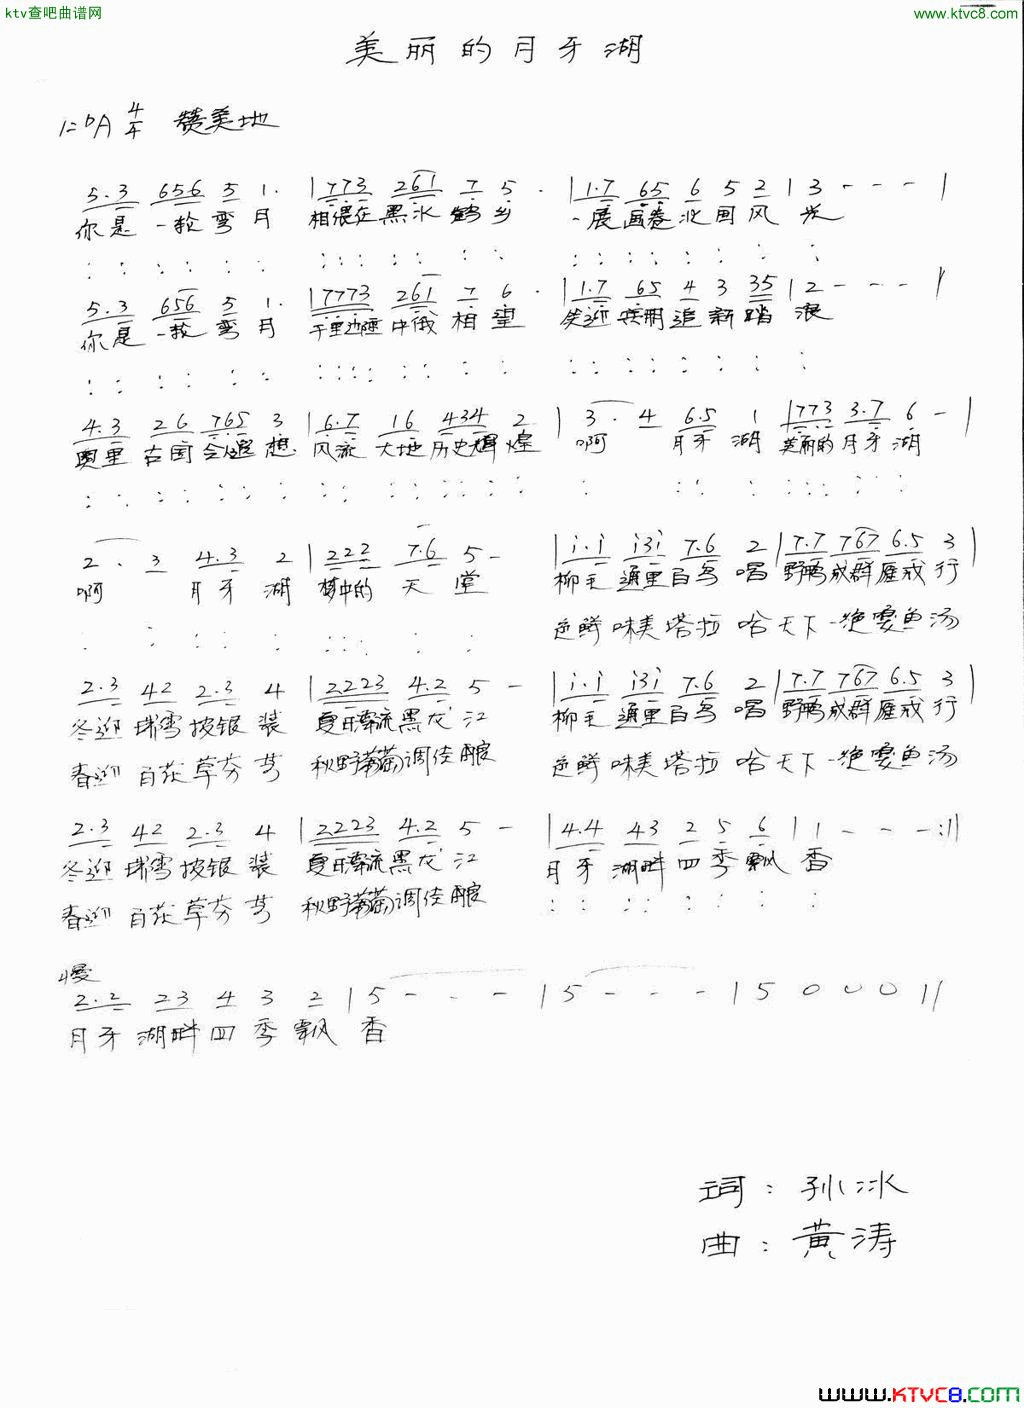 ktv查吧曲谱网
www.ktvc8.com
美丽的月牙湖
1=bA 4/4 赞美地
5.3 656 5 1. | 773 261 7 5. | 1.7 65 6 5 2 | 3 - - - |
你是 一轮 弯 月 相偎在 黑水 鹤 乡 一展画卷北国风光
5.3 656 5 1. | 7773 261 7 6. | 1.7 65 4 3 35 | 2 - - - |
你是 一轮 弯 月 千里边陲 中俄 相望 笑迎 黎明 追新踏浪
4.3 26 765 3 | 6.7 16 434 2 | 3. 4 6.5 1 | 773 3.7 6 - |
奥里 古国 令人遐想 风流 大地 历史辉煌 啊 月牙湖 美丽的月牙湖
2. 3 4.3 2 | 222 7.6 5 - | i.i i3i 7.6 2 | 7.7 767 6.5 3 |
啊 月牙 湖 梦中的 天 堂 柳毛 通里百鸟 唱 野鸭成群雁成行
色鲜 味美塔拉 哈 天下一绝 鱼汤
2.3 42 2.3 4 | 2223 4.2 5 - | i.i i3i 7.6 2 | 7.7 767 6.5 3 |
冬迎 瑞雪 披银 装 夏日 流黑龙江 柳毛 通里百鸟 唱 野鸭成群雁成行
春迎 百花 草芬芳 秋野葡萄调佳酿 色鲜 味美塔拉 哈 天下一绝 鱼汤
2.3 42 2.3 4 | 2223 4.2 5 - | 4.4 43 2 5 6 | 1 - - - :||
冬迎 瑞雪 披银 装 夏日 流黑龙江 月牙 湖畔 四季飘 香
春迎 百花 草芬芳 秋野葡萄调佳酿
慢
2.2 23 4 3 2 | 5 - - - | 5 - - - | 5 0 0 0 ||
月牙 湖畔 四 季 飘 香
词：孙冰
曲：黄涛
www.KTVC8.com